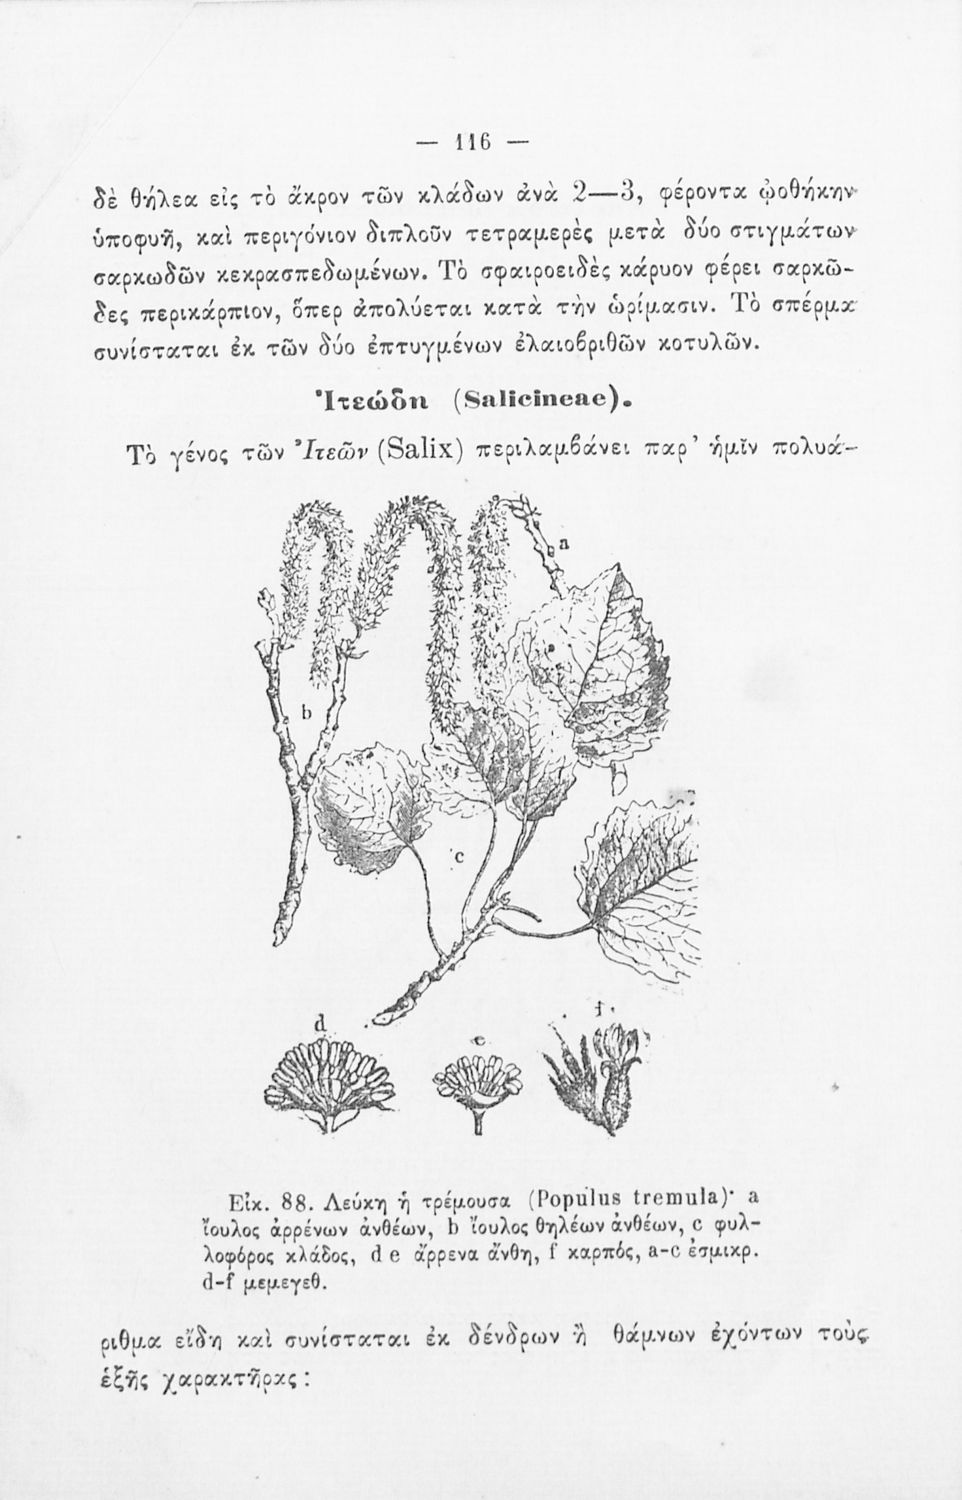 — 116 —
δὲ θήλεα εἰς τὸ ἄκρον τῶν κλάδων ἀνὰ 2—3, φέροντα ᾠοθήκην
ὑποφυῆ, καὶ περιγόνιον διπλοῦν τετραμερὲς μετὰ δύο στιγμάτων
σαρκωδῶν κεκρασπεδωμένων. Τὸ σφαιροειδὲς κάρυον φέρει σαρκῶ-
δες περικάρπιον, ὅπερ ἀπολύεται κατὰ τὴν ὡρίμασιν. Τὸ σπέρμα
συνίσταται ἐκ τῶν δύο ἐπτυγμένων ἐλαιοβριθῶν κοτυλῶν.
Ἰτεώδη (Salicineae).
Τὸ γένος τῶν Ἰτεῶν (Salix) περιλαμβάνει παρ’ ἡμῖν πολυά-
a
b
c
d
e
f
Εἰκ. 88. Λεύκη ἡ τρέμουσα (Populus tremula)· a
ἴουλος ἀρρένων ἀνθέων, b ἴουλος θηλέων ἀνθέων, c φυλ-
λοφόρος κλάδος, d e ἄρρενα ἄνθη, f καρπός, a-c ἐσμικρ.
d-f μεμεγεθ.
ριθμα εἴδη καὶ συνίσταται ἐκ δένδρων ἢ θάμνων ἐχόντων τοὺς
ἑξῆς χαρακτῆρας :